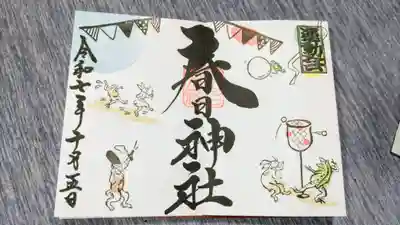 運動会
春日神社
令和七年十月五日